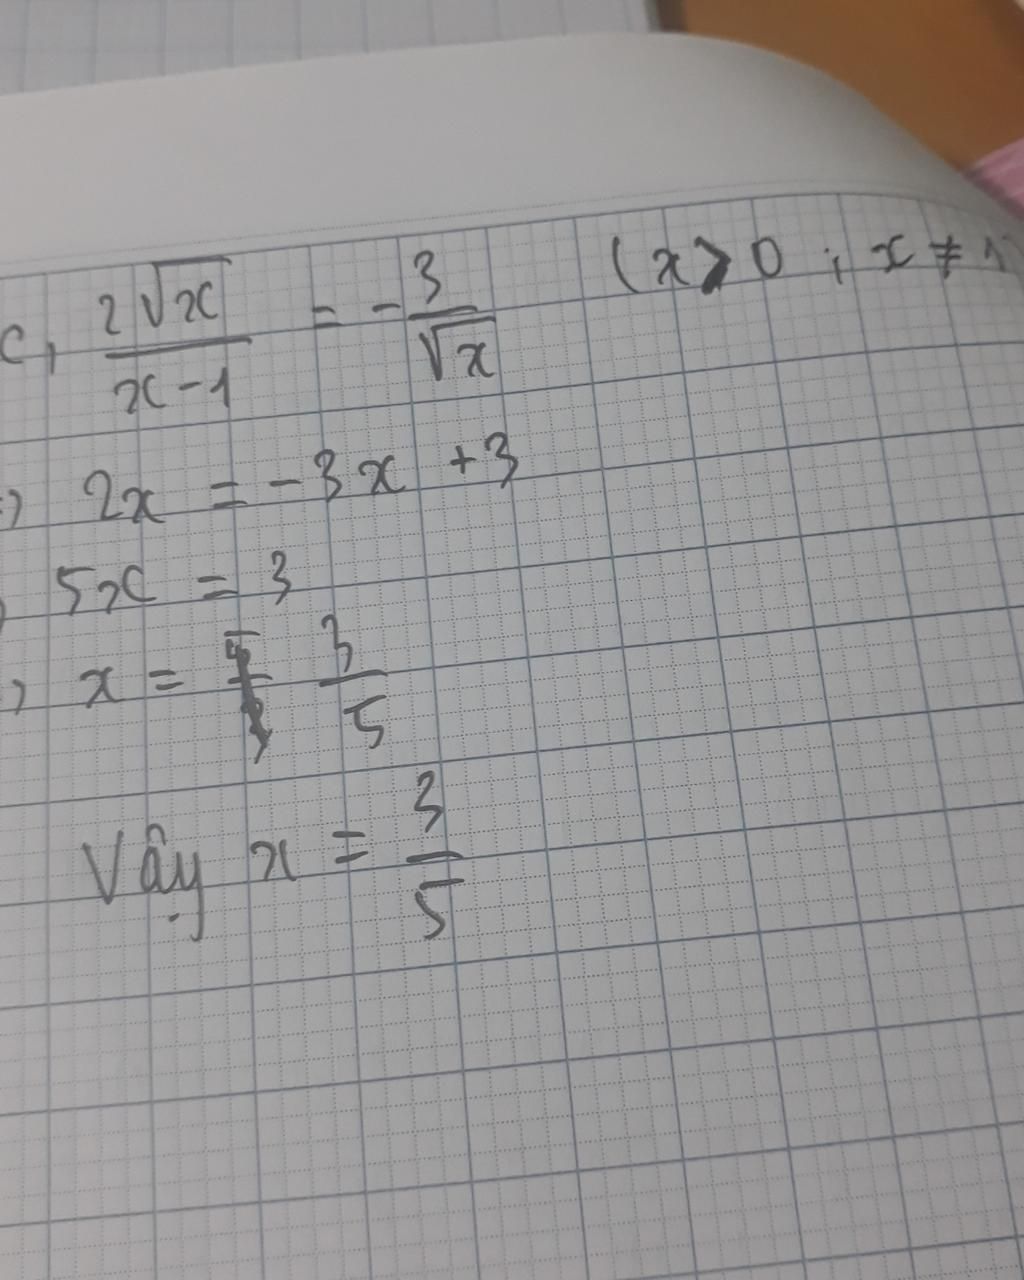 c, 2√x / x-1 = - 3/√x (x > 0 ; x ≠ 1)
=> 2x = -3x + 3
=> 5x = 3
=> x = 3/5
Vậy x = 3/5